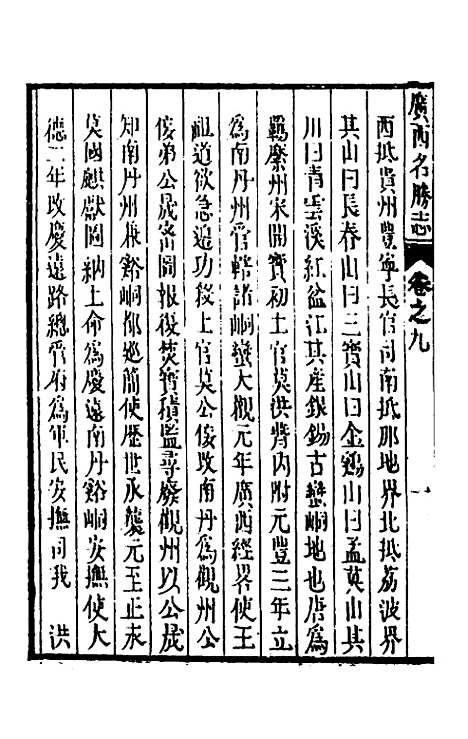 廣西名勝志 卷之九 一
西抵貴州豐寧長官司南抵那地界北抵荔波界
其山曰長春山曰三寶山曰金鷄山曰孟英山其
川曰青雲溪紅盆江其產銀錫古蠻峒地也唐爲
羈縻州宋開寶初土官莫洪𦙍内附元豐三年立
爲南丹州管轄諸峒蠻大觀元年廣西經畧使王
祖道欲急邊功殺土官莫公佞改南丹爲觀州公
佞弟公晟密圖報復焚寳積監尋廢觀州以公晟
知南丹州兼谿峒都廵簡使歷世承襲元至正末
莫國麒獻圖納土命爲慶遠南丹谿峒安撫使大
德二年改慶遠路總管府爲軍民安撫司我 洪